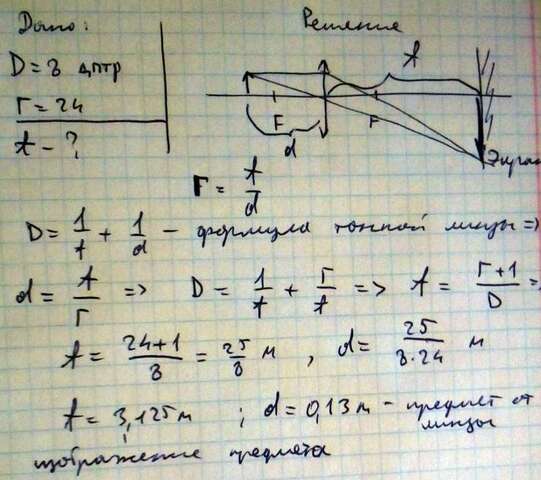 Дано:
Решение
D = 8 дптр
Г = 24
f - ?
f
F
F
d
Экран
Г = f/d
D = 1/f + 1/d - формула тонкой линзы =>
d = f/Г => D = 1/f + Г/f => f = (Г+1)/D =>
f = (24+1)/8 = 25/8 м , d = 25/(8·24) м
f = 3,125 м ; d = 0,13 м - предмет от
линзы
изображение предмета